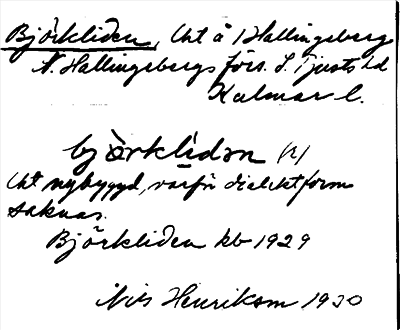 Björkliden, lht å Hallingeberg
N. Hallingebergs förs. S. Tjusts hd
Kalmar l.
bjö̀rklídən (l)
lht nybyggd, varför dialektform
saknas.
Björkliden kb 1929
Nils Henrikson 1930